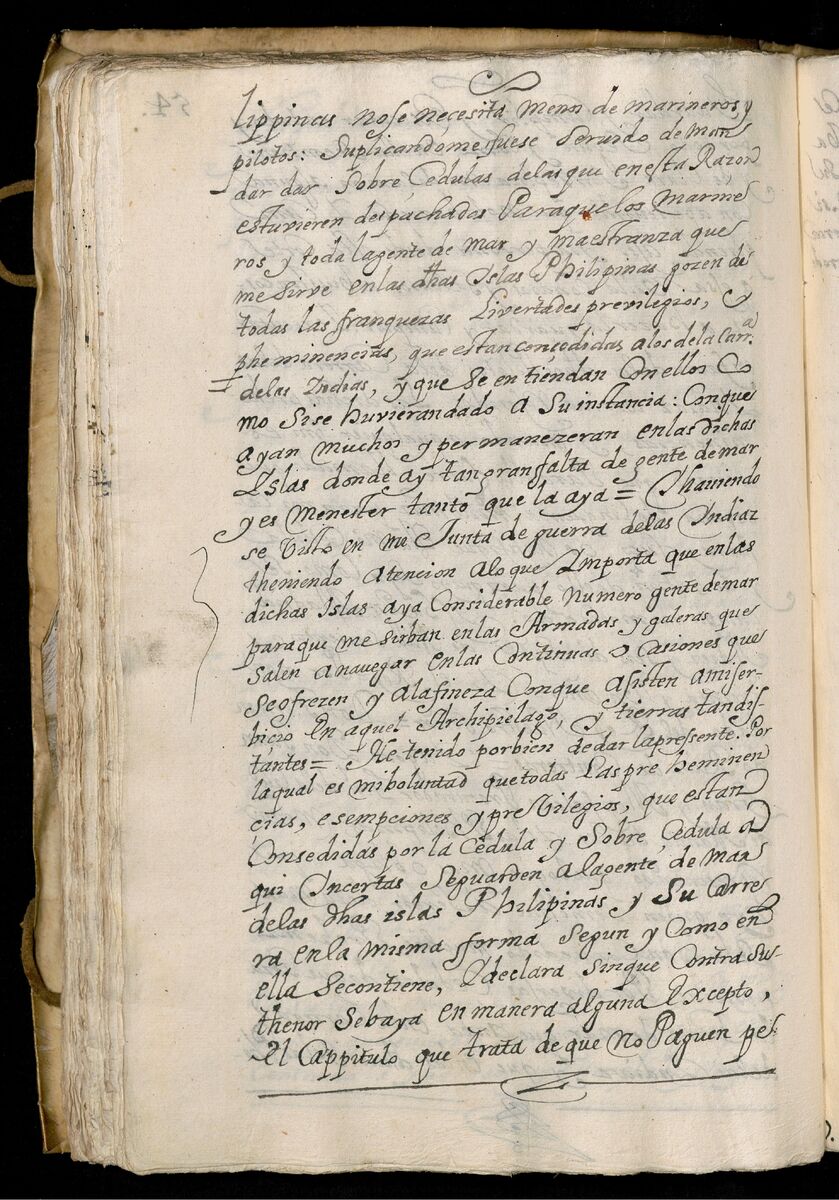 lippinas nose necesita menos de marineros, y
pilotos: Suplicandome fuese Servido deman
dar dar Sobre Cedulas delas que enesta Razon
estuvieren despachadas Paraque los Marine
ros y toda lagente de Mar y maestranza que
me Sirve enlas dhas Islas Philipinas gozen de
todas las franquezas Livertades previlegios, y
pheminencias, que estan concedidas alos dela Carr.a
delas Indias, y que Se entiendan Con ellos Co
mo Sise huvieran dado a Su instancia: Conque
ayan muchos y permanezeran enlas dichas
Islas donde ay tangran falta de gente demar
y es menester tanto que la aya = Y haviendo
se Visto en mi Junta de guerra delas Indias
theniendo atencion alo que Importa que enlas
dichas Islas aya Considerable numero gente demar
paraque me Sirban enlas Armadas y galeras que
Salen anavegar enlas Continuas ocasiones que
Seofrezen y alafineza Conque asisten amiser-
bicio En aquel Archipielago, y tierras tandis
tantes = He tenido porbien dedar lapressente. Por
laqual es miboluntad quetodas Laspre heminen
cias, esempciones y preVilegios, que estan
Consedidas por la Cedula y Sobre Cedula a
qui Incertas Seguarden alagente de Mar
delas dhas islas Philipinas y Su Carre
ra enla misma fforma Segun y Como en
ella Secontiene, Ydeclara Sinque Contra Su
thenor Sebaya en manera alguna Excepto,
el Cappitulo que trata de que no Paguen pe-